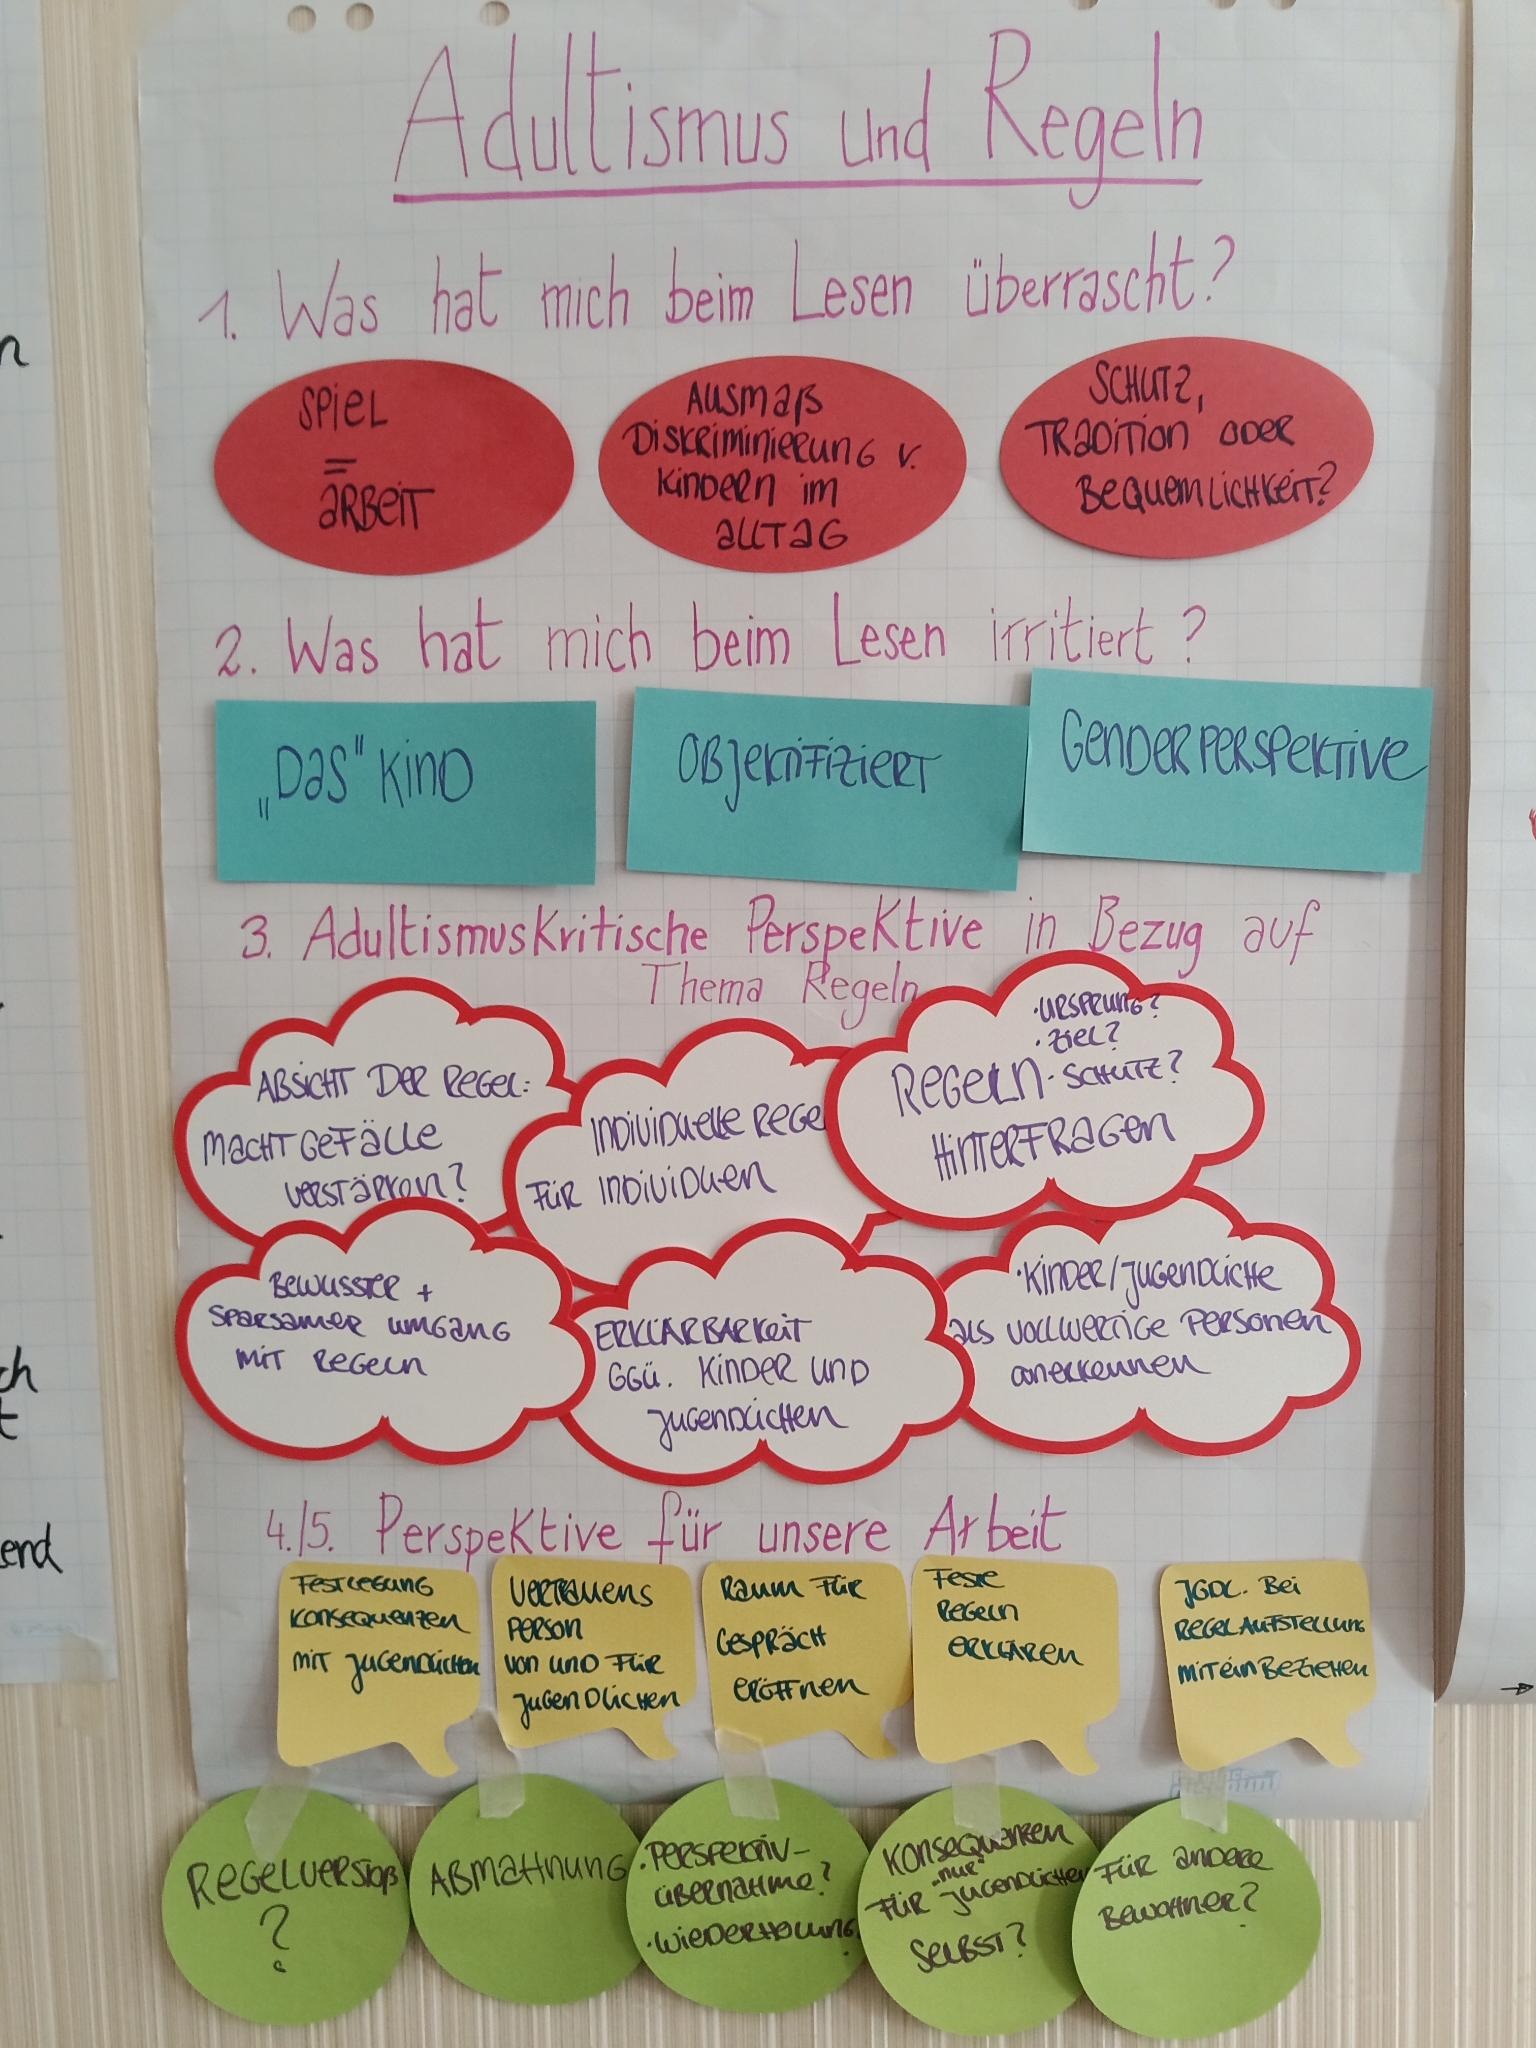 Adultismus und Regeln
1. Was hat mich beim Lesen überrascht?
SPIEL
=
ARBEIT
AUSMAß
DISKRIMINIERUNG v.
KINDERN IM
ALLTAG
SCHUTZ,
TRADITION ODER
BEQUEMLICHKEIT?
2. Was hat mich beim Lesen irritiert?
„DAS“ KIND
OBJEKTIFIZIERT
GENDERPERSPEKTIVE
3. Adultismuskritische Perspektive in Bezug auf
Thema Regeln
ABSICHT DER REGEL:
MACHTGEFÄLLE
VERSTÄRKEN?
INDIVIDUELLE REGE
FÜR INDIVIDUEN
·URSPRUNG?
·ZIEL?
REGELN ·SCHUTZ?
HINTERFRAGEN
BEWUSSTER +
SPARSAMER UMGANG
MIT REGELN
ERKLÄRBARKEIT
GGÜ. KINDER UND
JUGENDLICHEN
·KINDER/JUGENDLICHE
ALS VOLLWERTIGE PERSONEN
ANERKENNEN
4./5. Perspektive für unsere Arbeit
FESTLEGUNG
KONSEQUENZEN
MIT JUGENDLICHEN
VERTRAUENS
PERSON
VON UND FÜR
JUGENDLICHEN
RAUM FÜR
GESPRÄCH
ERÖFFNEN
FESTE
REGELN
ERKLÄREN
JGDL. BEI
REGELAUFSTELLUNG
MITEINBEZIEHEN
REGELVERSTOß
?
ABMAHNUNG
·PERSPEKTIV-
ÜBERNAHME?
·WIEDERHOLUNG
KONSEQUENZEN
"NUR"
FÜR JUGENDLICHEN
SELBST?
FÜR ANDERE
BEWOHNER?
n
ch
t
end